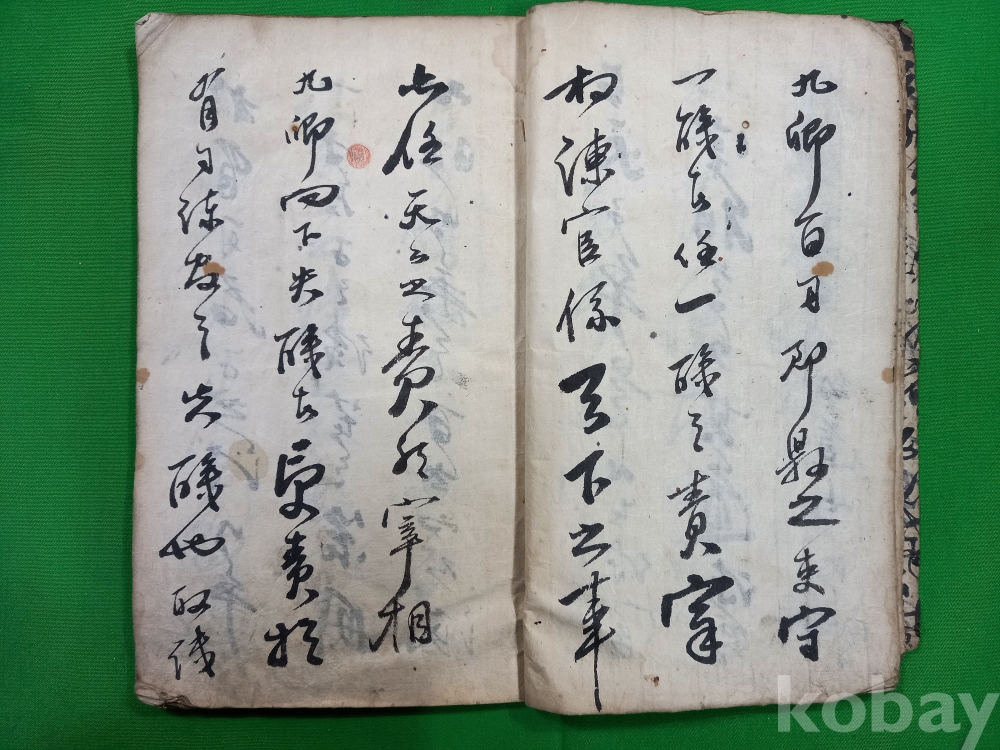 九卿百司郡縣之吏守
一職者任一職之責宰
相諫官係天下之事
亦任天下之責然宰相
九卿而下失職者受責於
有司諫官之失職也取譏
kobay